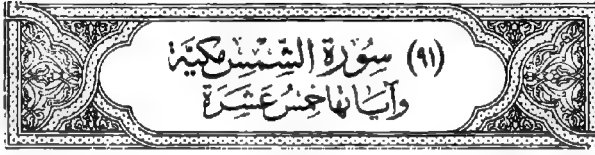 (٩١) سُورَة الشَّمْسِ مَكيَّة
وَآيَاتها خَمْسُ عَشرَة